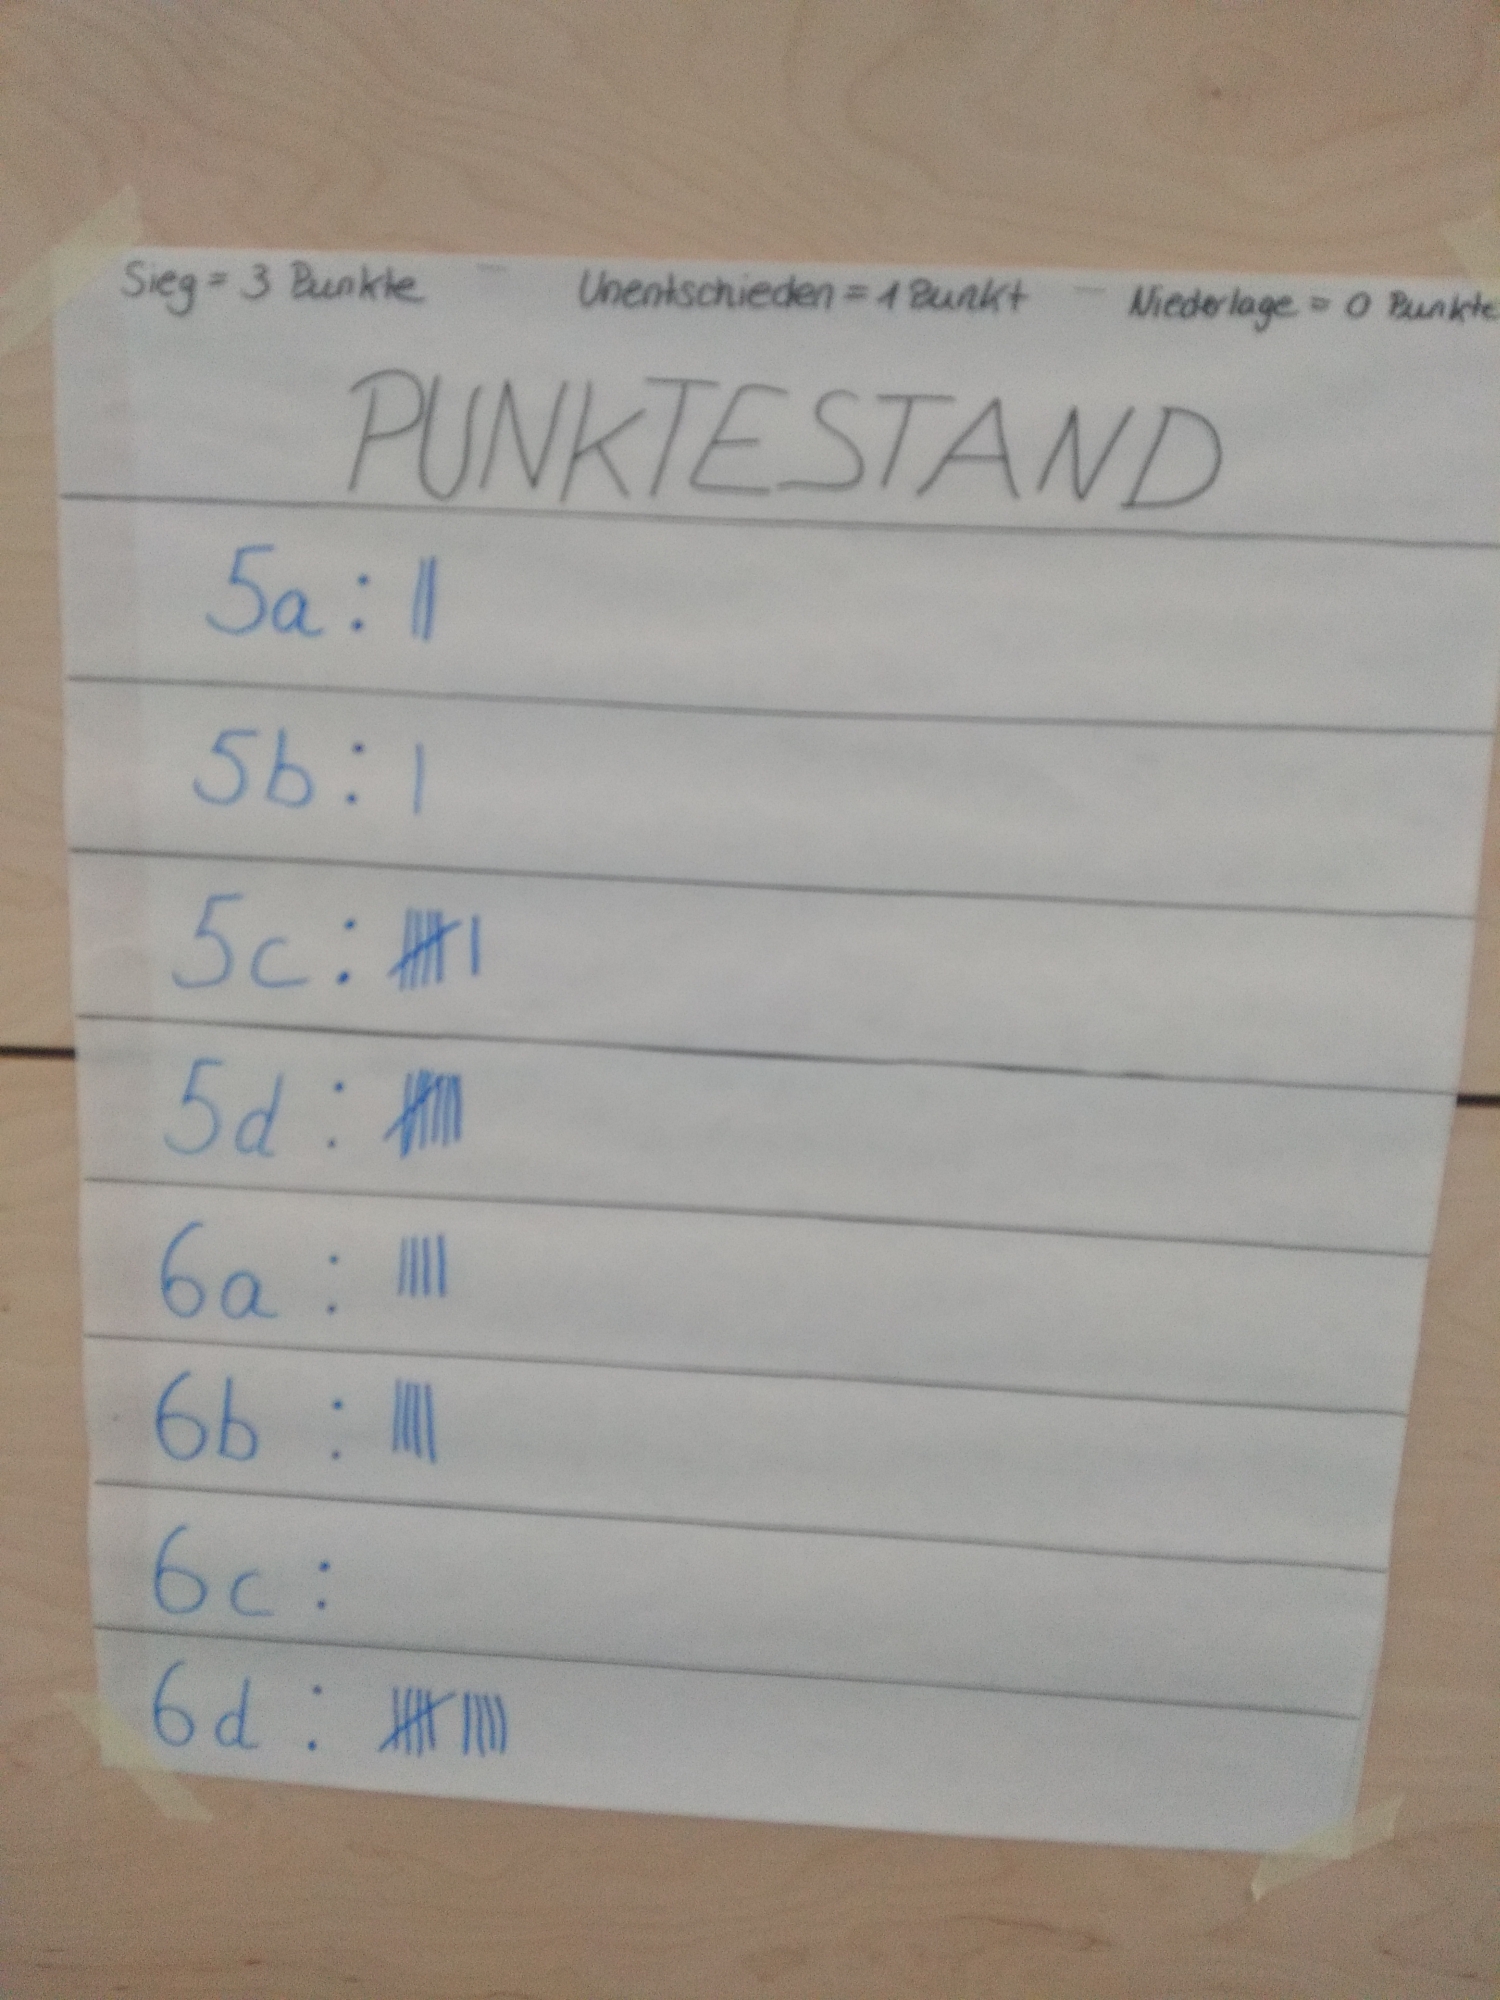 Sieg = 3 Punkte - Unentschieden = 1 Punkt - Niederlage = 0 Punkte
PUNKTESTAND
5a : ||
5b : |
5c : 𝍸 |
5d :
6a : ||||
6b : ||||
6c :
6d : 𝍸 ||||